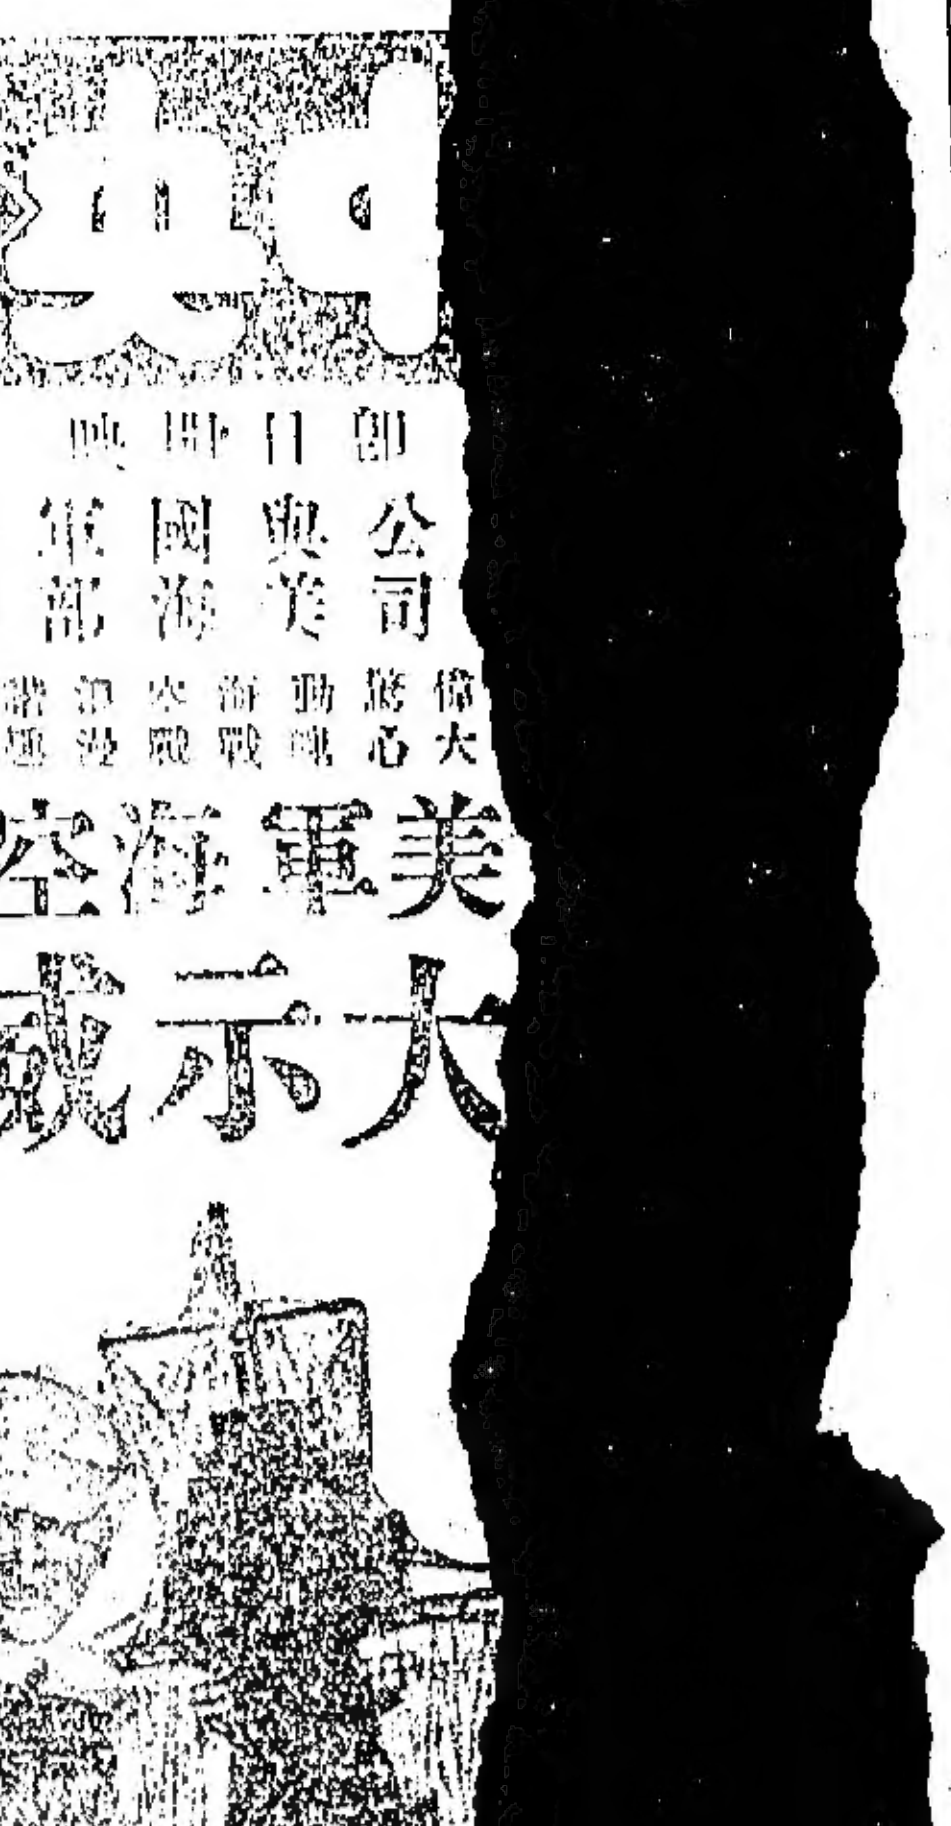 中央
即日開映
公司與美國海軍部
偉大驚心動魄海戰空戰浪漫諧趣
美軍海空
大示威